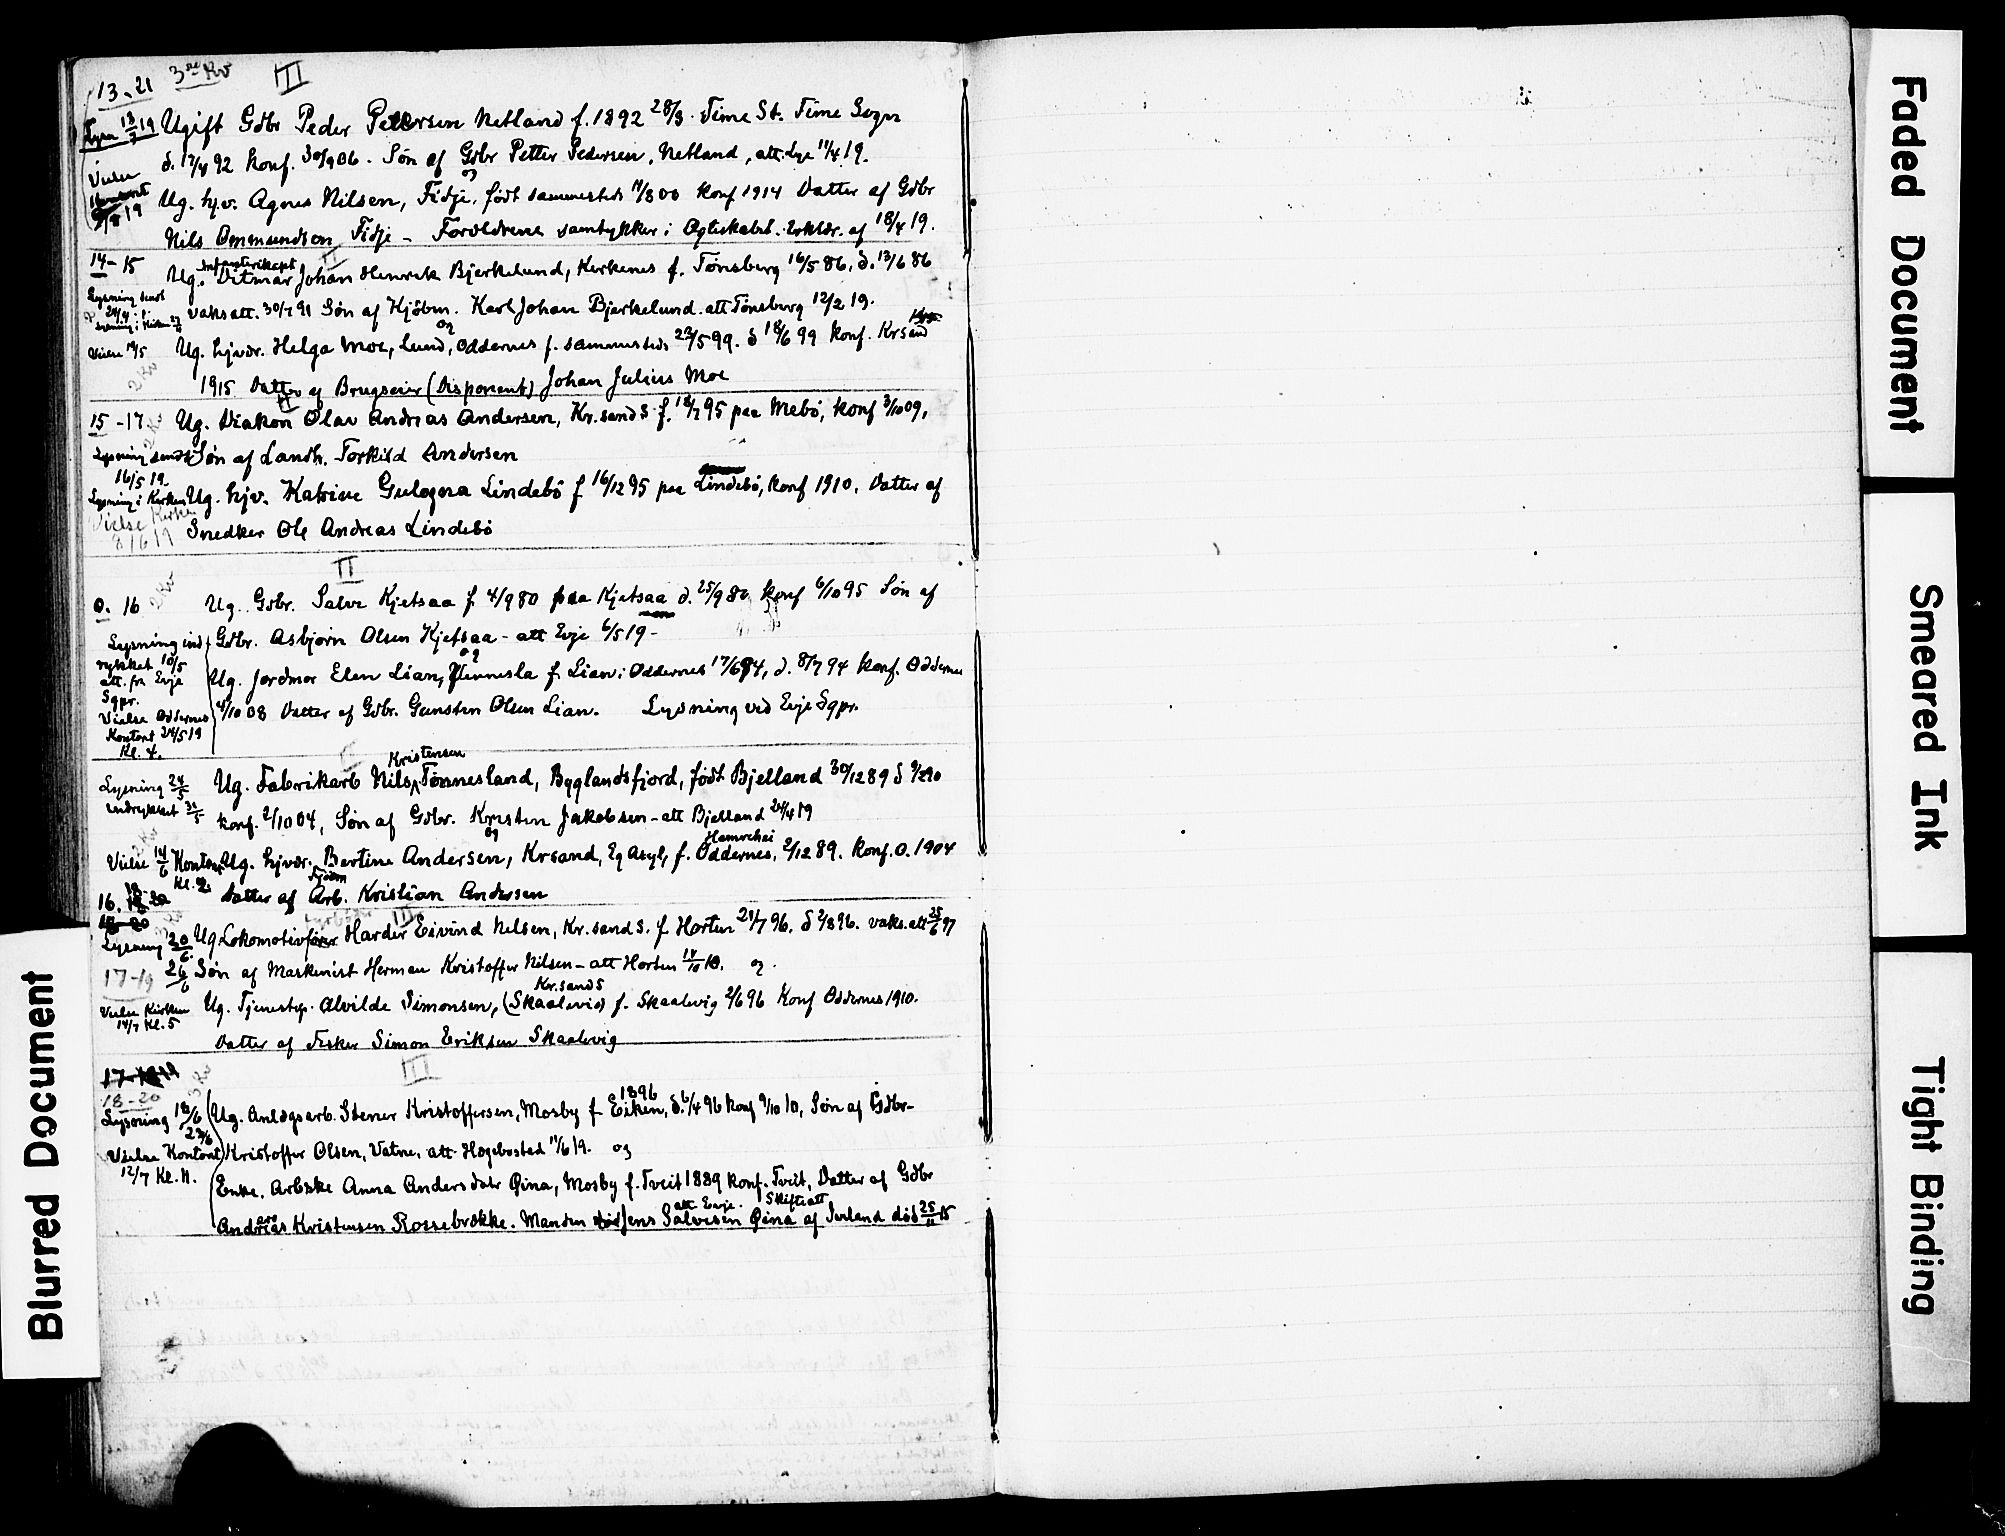 13-21 3die Kv III
Lysn 13/7 19 Ugift Gdbr Peder Pettersen Netland f. 1892 28/3. Time St. Time Sogn
d. 17/4 92 konf. 30/9 06. Søn af Gdbr Petter Pedersen, Netland, att. Lye 11/4 19.
og
Vielse
9/8 19
Ug. hj.v. Agnes Nilsen, Fidje, født sammesteds 11/8 00 konf 1914 Datter af Gdbr
Nils Ommundsen Fidje - Forældrene samtykker i Ægteskabet. Erklær. af 18/4 19.
14-15 Ug. Ditmar Johan Henrik Bjerkelund, Kirkenes f. Tønsberg 16/5 86, d. 13/6 86
Lysning sendt
vaks att. 30/7 91 Søn af Hjöbm. Karl Johan Bjerkelund. att Tønsberg 12/2 19.
og
Vielse 14/5
Ug. hjvær. Helga Moe, Lund, Oddernes f. sammesteds 27/5 99. d 18/6 99 konf. Krsand
2 Kv
1915 Datter af Brugseier (Disponent) Johan Julius Moe
II
15-17 Ug. Diakon Olav Andreas Andersen, Kr.sand S. f. 18/7 95 paa Mebö, konf 3/10 09,
Lysning sendt Søn af Landh. Torkild Andersen
16/5 19.
Lysning i Kirken Ug. hjv. Katrine Gulogna Lindebö f 16/12 95 paa Lindebö, konf 1910. Datter af
Vielse Kirken
8/6 19 Snedker Ole Andreas Lindebö
II
0. 16 2 Kv Ug. Gdbr. Salve Kjetsaa f. 4/9 80 paa Kjetsaa d. 25/9 80 konf 6/10 95 Søn af
Lysning ind
rykket 10/5
att. fra Evje
Sgpr.
Vielse Oddernes
Kontont 24/5 19
Kl. 4.
Gdbr. Asbjørn Olsen Kjetsaa - att Evje 6/5 19 -
og
Ug. Jordmor Elen Lian, Vennesla f. Lian i Oddernes 17/6 84, d. 8/7 94 konf. Oddernes
4/10 08 Datter af Gdbr. Gunsten Olsen Lian. Lysning ved Evje Sgpr.
Kristensen
Lysning 24/5
indrykket 31/5
Ug. Fabrikarb Nils Tønnesland, Byglandsfjord, født Bjelland 30/12 89 d 9/2 90
konf. 2/10 04, Søn af Gdbr. Kristen Jakobsen - att Bjelland 24/4 19
og
Hamrehei
Vielse 14/6 Kontoret Ug. hjvær. Bertine Andersen, Krsand, Eg Asyl, f. Oddernes, 2/12 89. konf. O. 1904
Kl. 2
Datter af Arb. Kristian Andersen
16.
III
Lysning 20/6 Ug Lokomotivfører Harder Eivind Nelsen, Kr.sand S. f. Horten 21/7 96. d 2/8 96. vaks.att 25/6 97
17-19 26/6 Søn af Maskinist Herman Kristoffer Nilsen - att Horten 14/10 18. og.
Kr.sand S
Vielse Kirken
14/7 Kl. 5
Ug. Tjenestep. Alvilde Simonsen, (Skaalevig) f. Skaalevig 2/6 96 Konf Oddernes 1910.
Datter af Fisker Simon Eriksen Skaalevig
III
18-20
1896
Lysning 18/6
23/6
Ug. Anlægsarb. Stener Kristoffersen, Mosby f Eiken, d. 6/4 96 konf 9/10 10, Søn af Gdbr-
Vielse Kontoret
12/7 Kl. 11.
Kristoffer Olsen, Vatne, att. Hægebosted 11/6 19. og
Enke, Arbske Anna Andersdatr Øina, Mosby f. Tveit 1889 konf. Tveit, Datter af Gdbr
att Evje. Skifteatt
Andreas Kristensen Rossebrække. Manden Jens Salvesen Øina af Iveland död 25/11 15
Faded Document
Smeared Ink
Tight Binding
Blurred Document